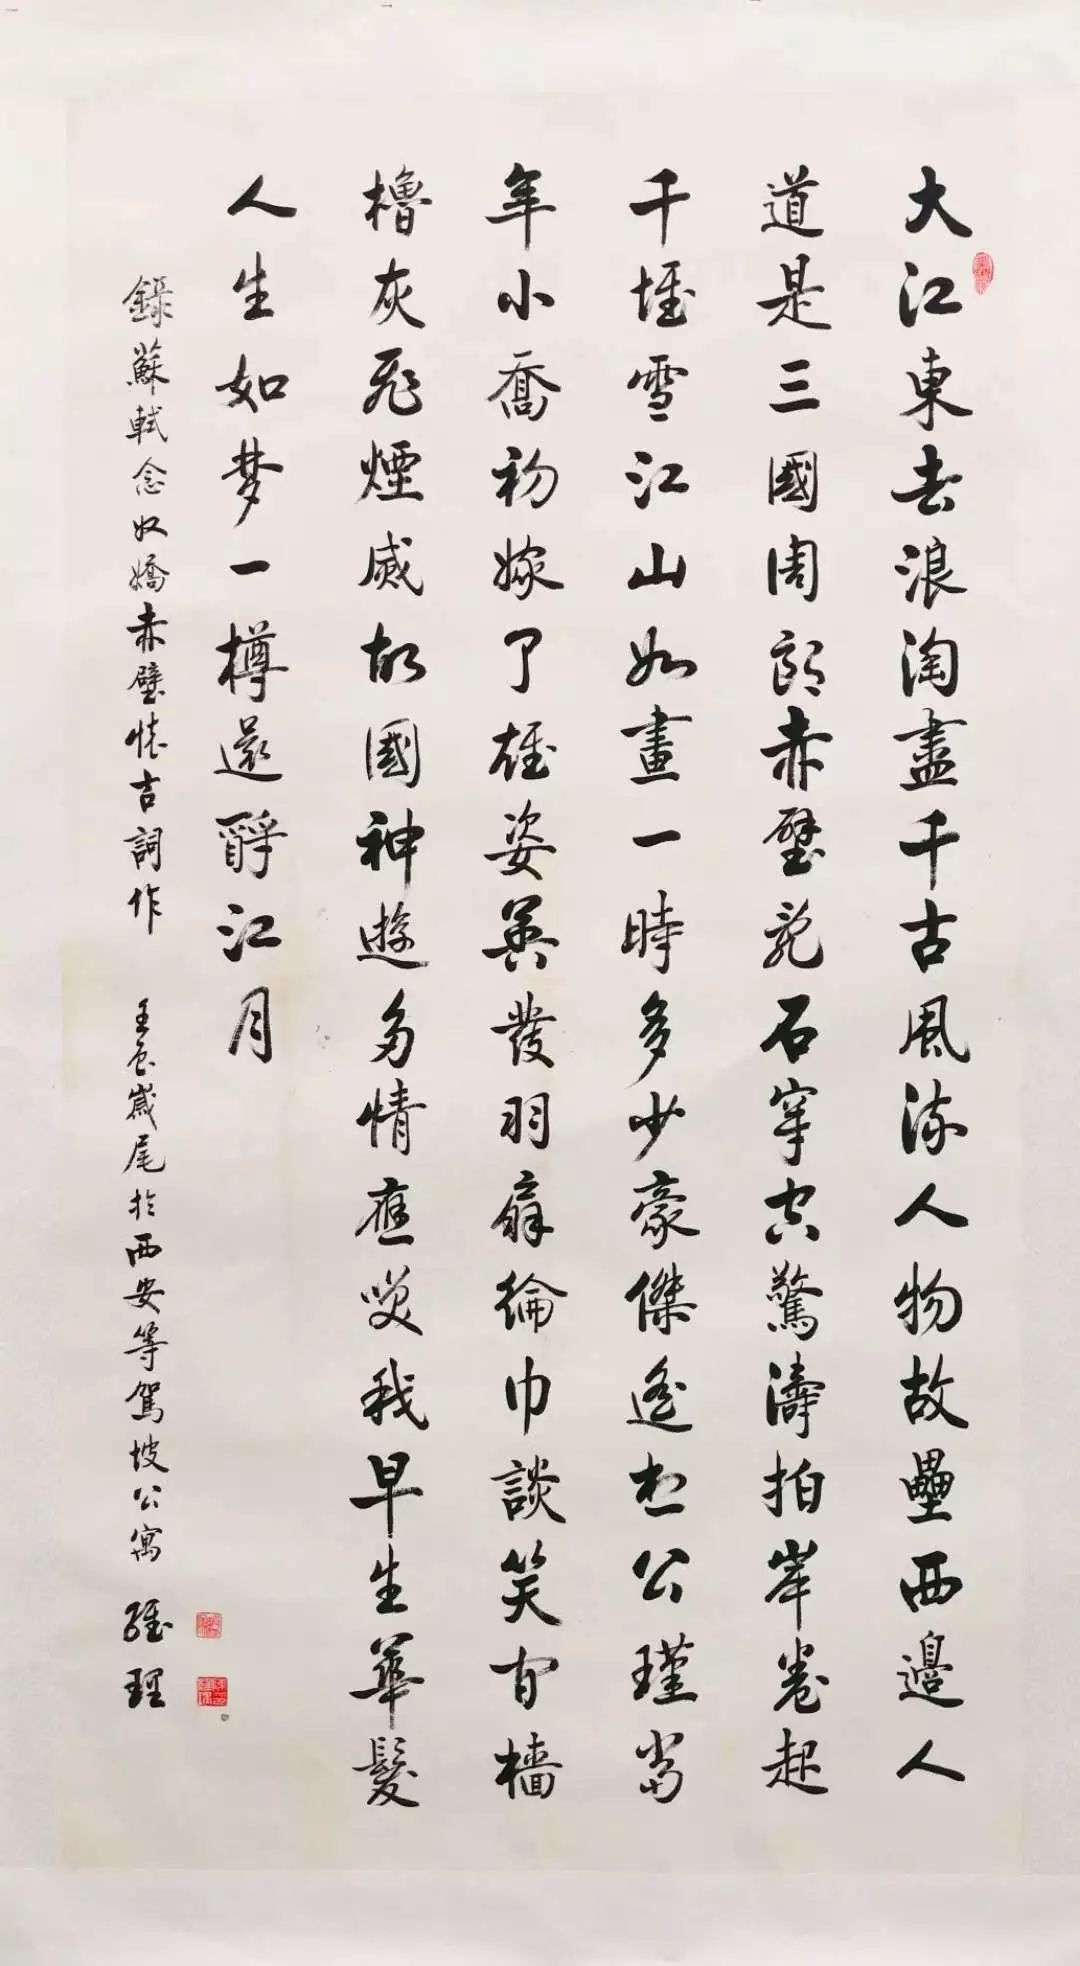 大江東去浪淘盡千古風流人物故壘西邊人
道是三國周郎赤壁亂石穿空驚濤拍岸卷起
千堆雪江山如畫一時多少豪傑遙想公瑾當
年小喬初嫁了雄姿英發羽扇綸巾談笑間檣
櫓灰飛煙滅故國神遊多情應笑我早生華髮
人生如梦一樽還酹江月
錄蘇軾念奴嬌赤壁懷古詞作
壬寅歲尾於西安等駕坡公寓
經理